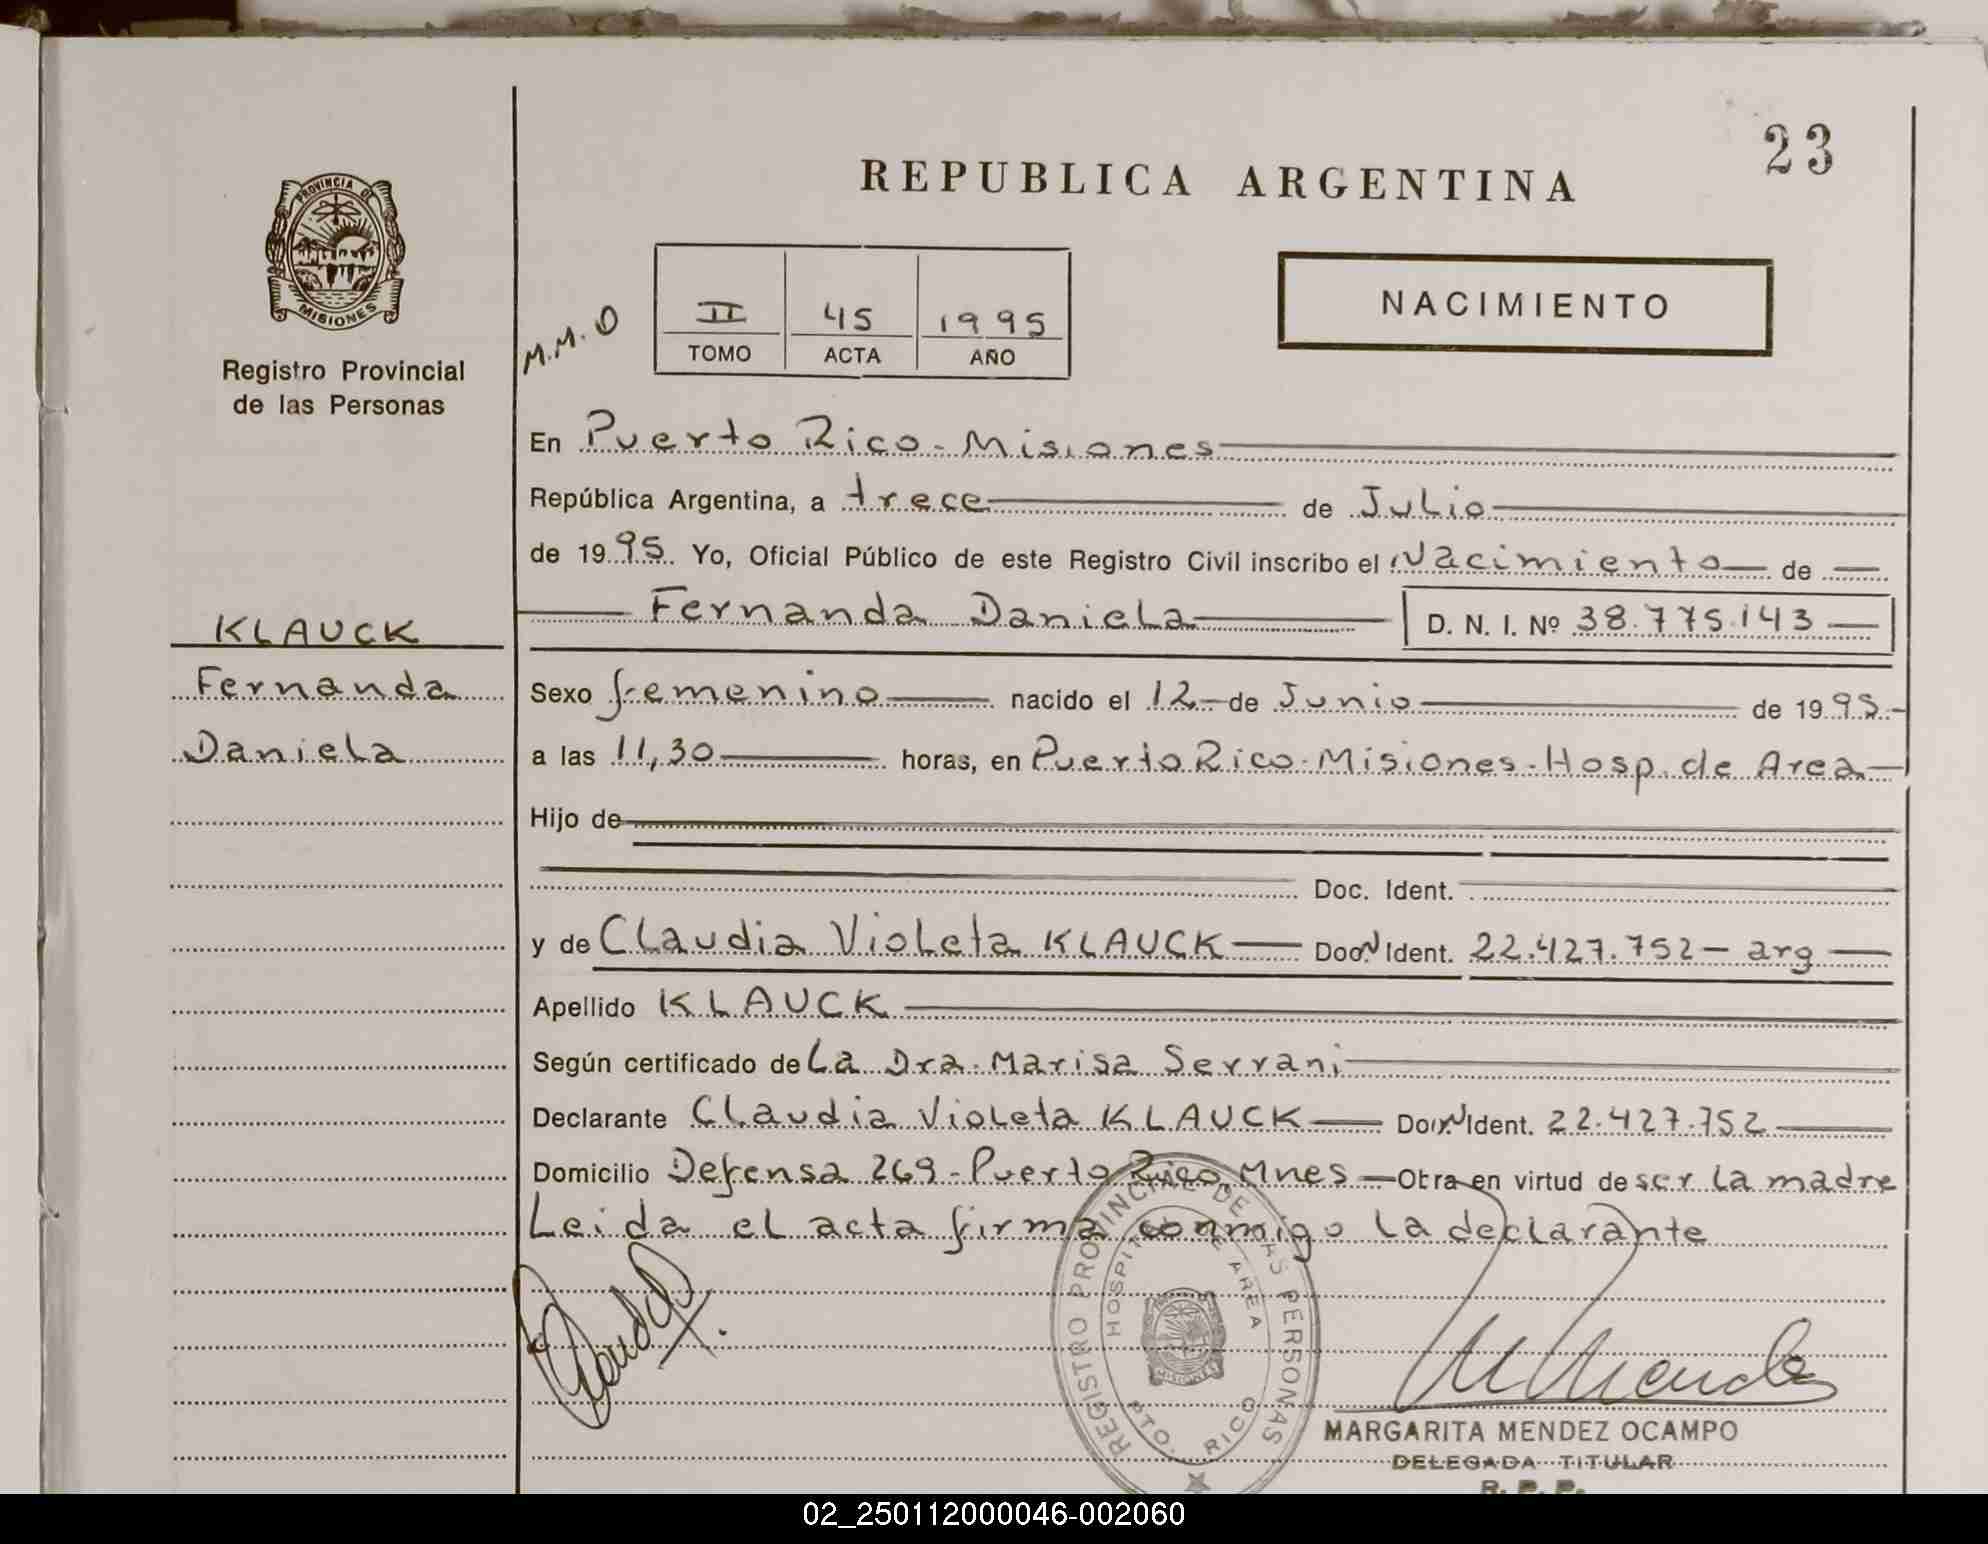 23
REPUBLICA ARGENTINA
PROVINCIA DE
MISIONES
Registro Provincial
de las Personas
M.M.O
II 45 1995
TOMO ACTA AÑO
NACIMIENTO
En Puerto Rico - Misiones
República Argentina, a trece de Julio
de 1995. Yo, Oficial Público de este Registro Civil inscribo el Nacimiento de
KLAUCK
Fernanda
Daniela
Fernanda Daniela D. N. I. Nº 38.775.143
Sexo femenino nacido el 12 de Junio de 1995
a las 11,30 horas, en Puerto Rico - Misiones - Hosp. de Area
Hijo de
Doc. Ident.
y de Claudia Violeta KLAUCK Doc. Ident. 22.427.752 - arg
Apellido KLAUCK
Según certificado de La Dra. Marisa Serrani
Declarante Claudia Violeta KLAUCK Doc. Ident. 22.427.752
Domicilio Defensa 269 - Puerto Rico, Mnes - Obra en virtud de ser la madre
Leida el acta firma conmigo la declarante
REGISTRO PROVINCIAL DE LAS PERSONAS
HOSPITAL DE AREA
MISIONES
PTO. RICO
MARGARITA MENDEZ OCAMPO
DELEGADA TITULAR
R. P. P.
02_250112000046-002060